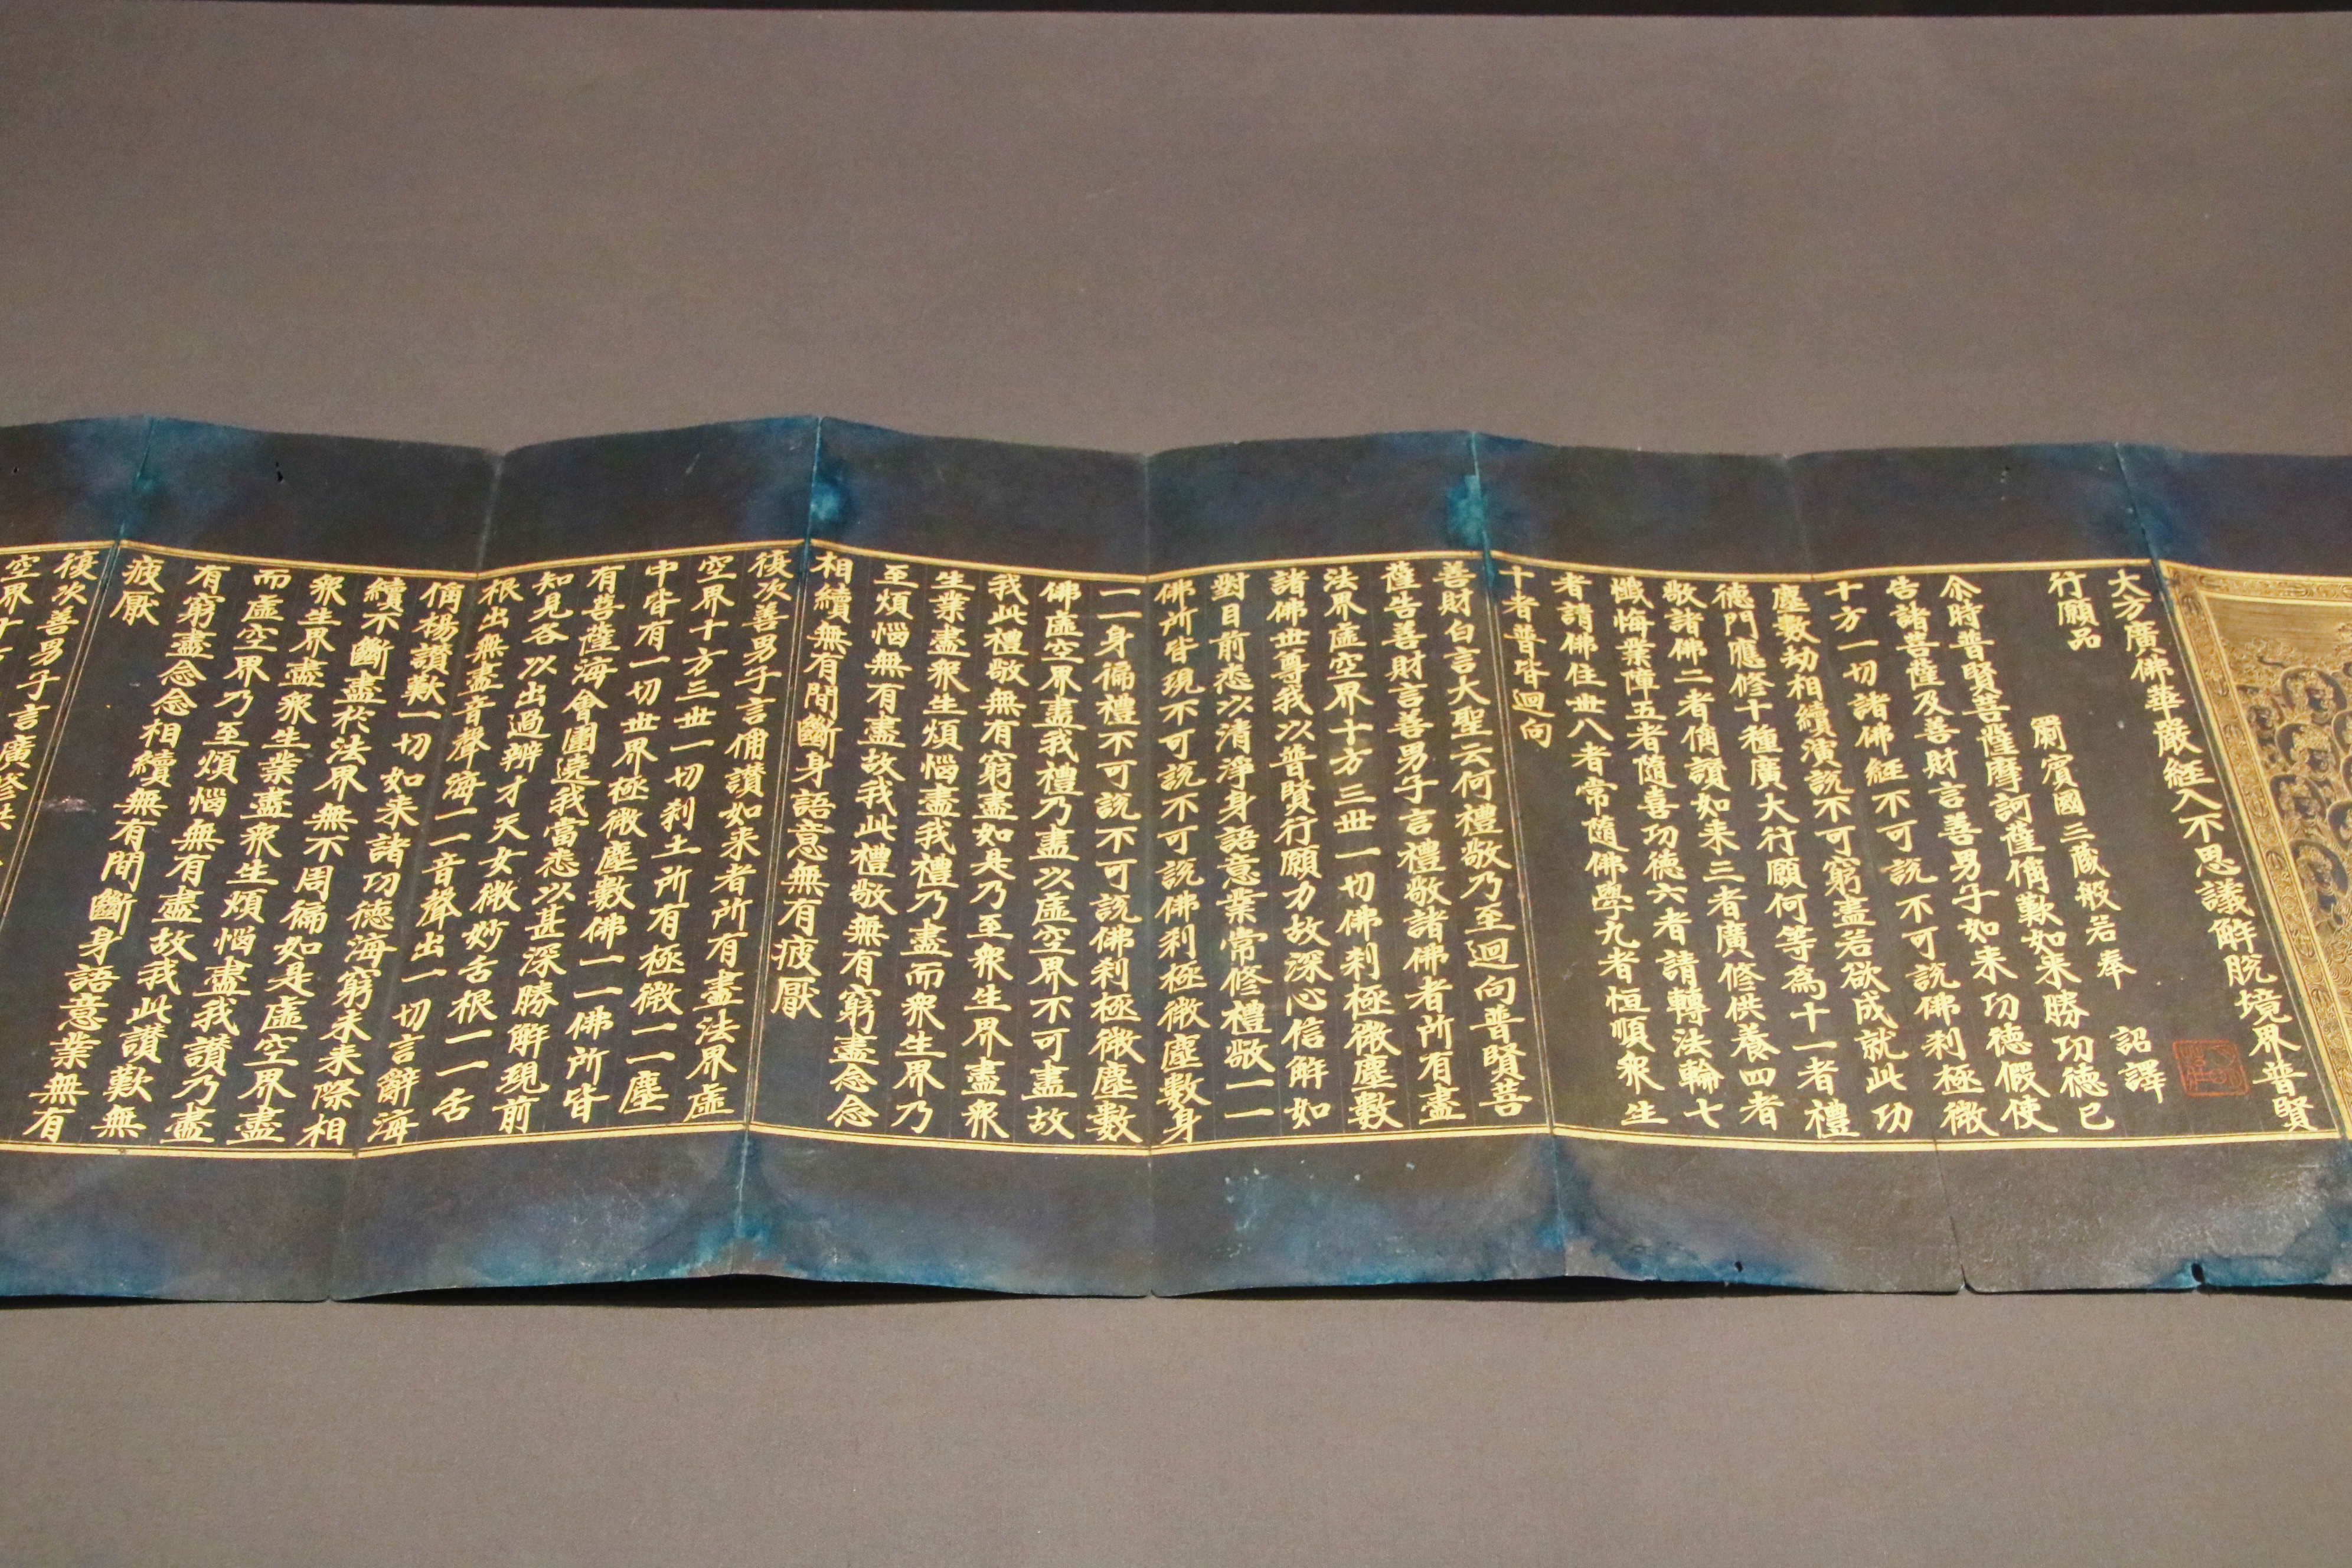 大方廣佛華嚴經入不思議解脫境界普賢
行願品
罽賓國三藏般若奉　詔譯
尒時普賢菩薩摩訶薩偁歎如来勝功德已
告諸菩薩及善財言善男子如来功德假使
十方一切諸佛經不可說不可說佛刹極微
塵數劫相續演說不可窮盡若欲成就此功
德門應修十種廣大行願何等為十一者禮
敬諸佛二者偁讚如来三者廣修供養四者
懺悔業障五者隨喜功德六者請轉法輪七
者請佛住世八者常隨佛學九者恒順衆生
十者普皆迴向
善財白言大聖云何禮敬乃至迴向普賢菩
薩告善財言善男子言禮敬諸佛者所有盡
法界虛空界十方三世一切佛刹極微塵數
諸佛世尊我以普賢行願力故深心信解如
對目前悉以清淨身語意業常修禮敬一一
佛所皆現不可說不可說佛刹極微塵數身
一一身徧禮不可說不可說佛刹極微塵數
佛虛空界盡我禮乃盡以虛空界不可盡故
我此禮敬無有窮盡如是乃至衆生界盡衆
生業盡衆生煩惱盡我禮乃盡而衆生界乃
至煩惱無有盡故我此禮敬無有窮盡念念
相續無有間斷身語意業無有疲厭
復次善男子言偁讚如来者所有盡法界虛
空界十方三世一切刹土所有極微一一塵
中皆有一切世界極微塵數佛一一佛所皆
有菩薩海會圍遶我當悉以甚深勝解現前
知見各以出過辨才天女微妙舌根一一舌
根出無盡音聲海一一音聲出一切言辭海
偁楊讚歎一切如来諸功德海窮未来際相
續不斷盡於法界無不周徧如是虛空界盡
衆生界盡衆生業盡衆生煩惱盡我讚乃盡
而虛空界乃至煩惱無有盡故我此讚歎無
有窮盡念念相續無有間斷身語意業無有
疲厭
復次善男子言廣修供
空界十方